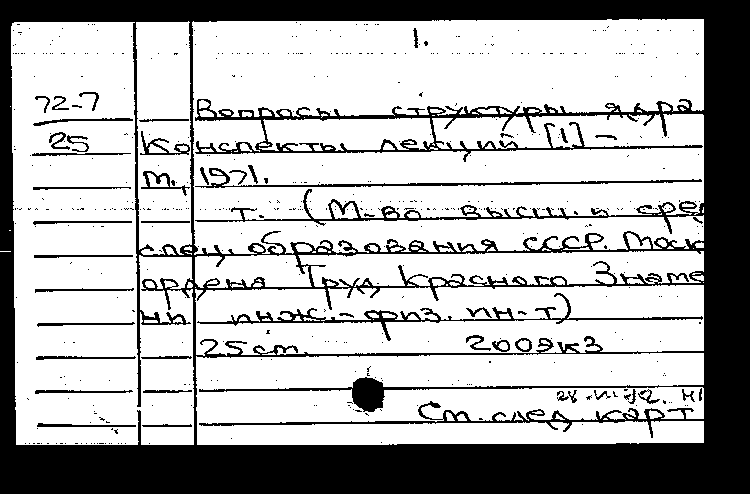 1.
72-7 Вопросы структуры ядра
25 Конспекты лекций [1] –
М., 1971.
т. (М-во высш. и сред
спец. образования СССР. Моск
ордена Труд. Красного Знаме
ни инж.-физ. ин-т)
25 см. 200экз
См. след. карт